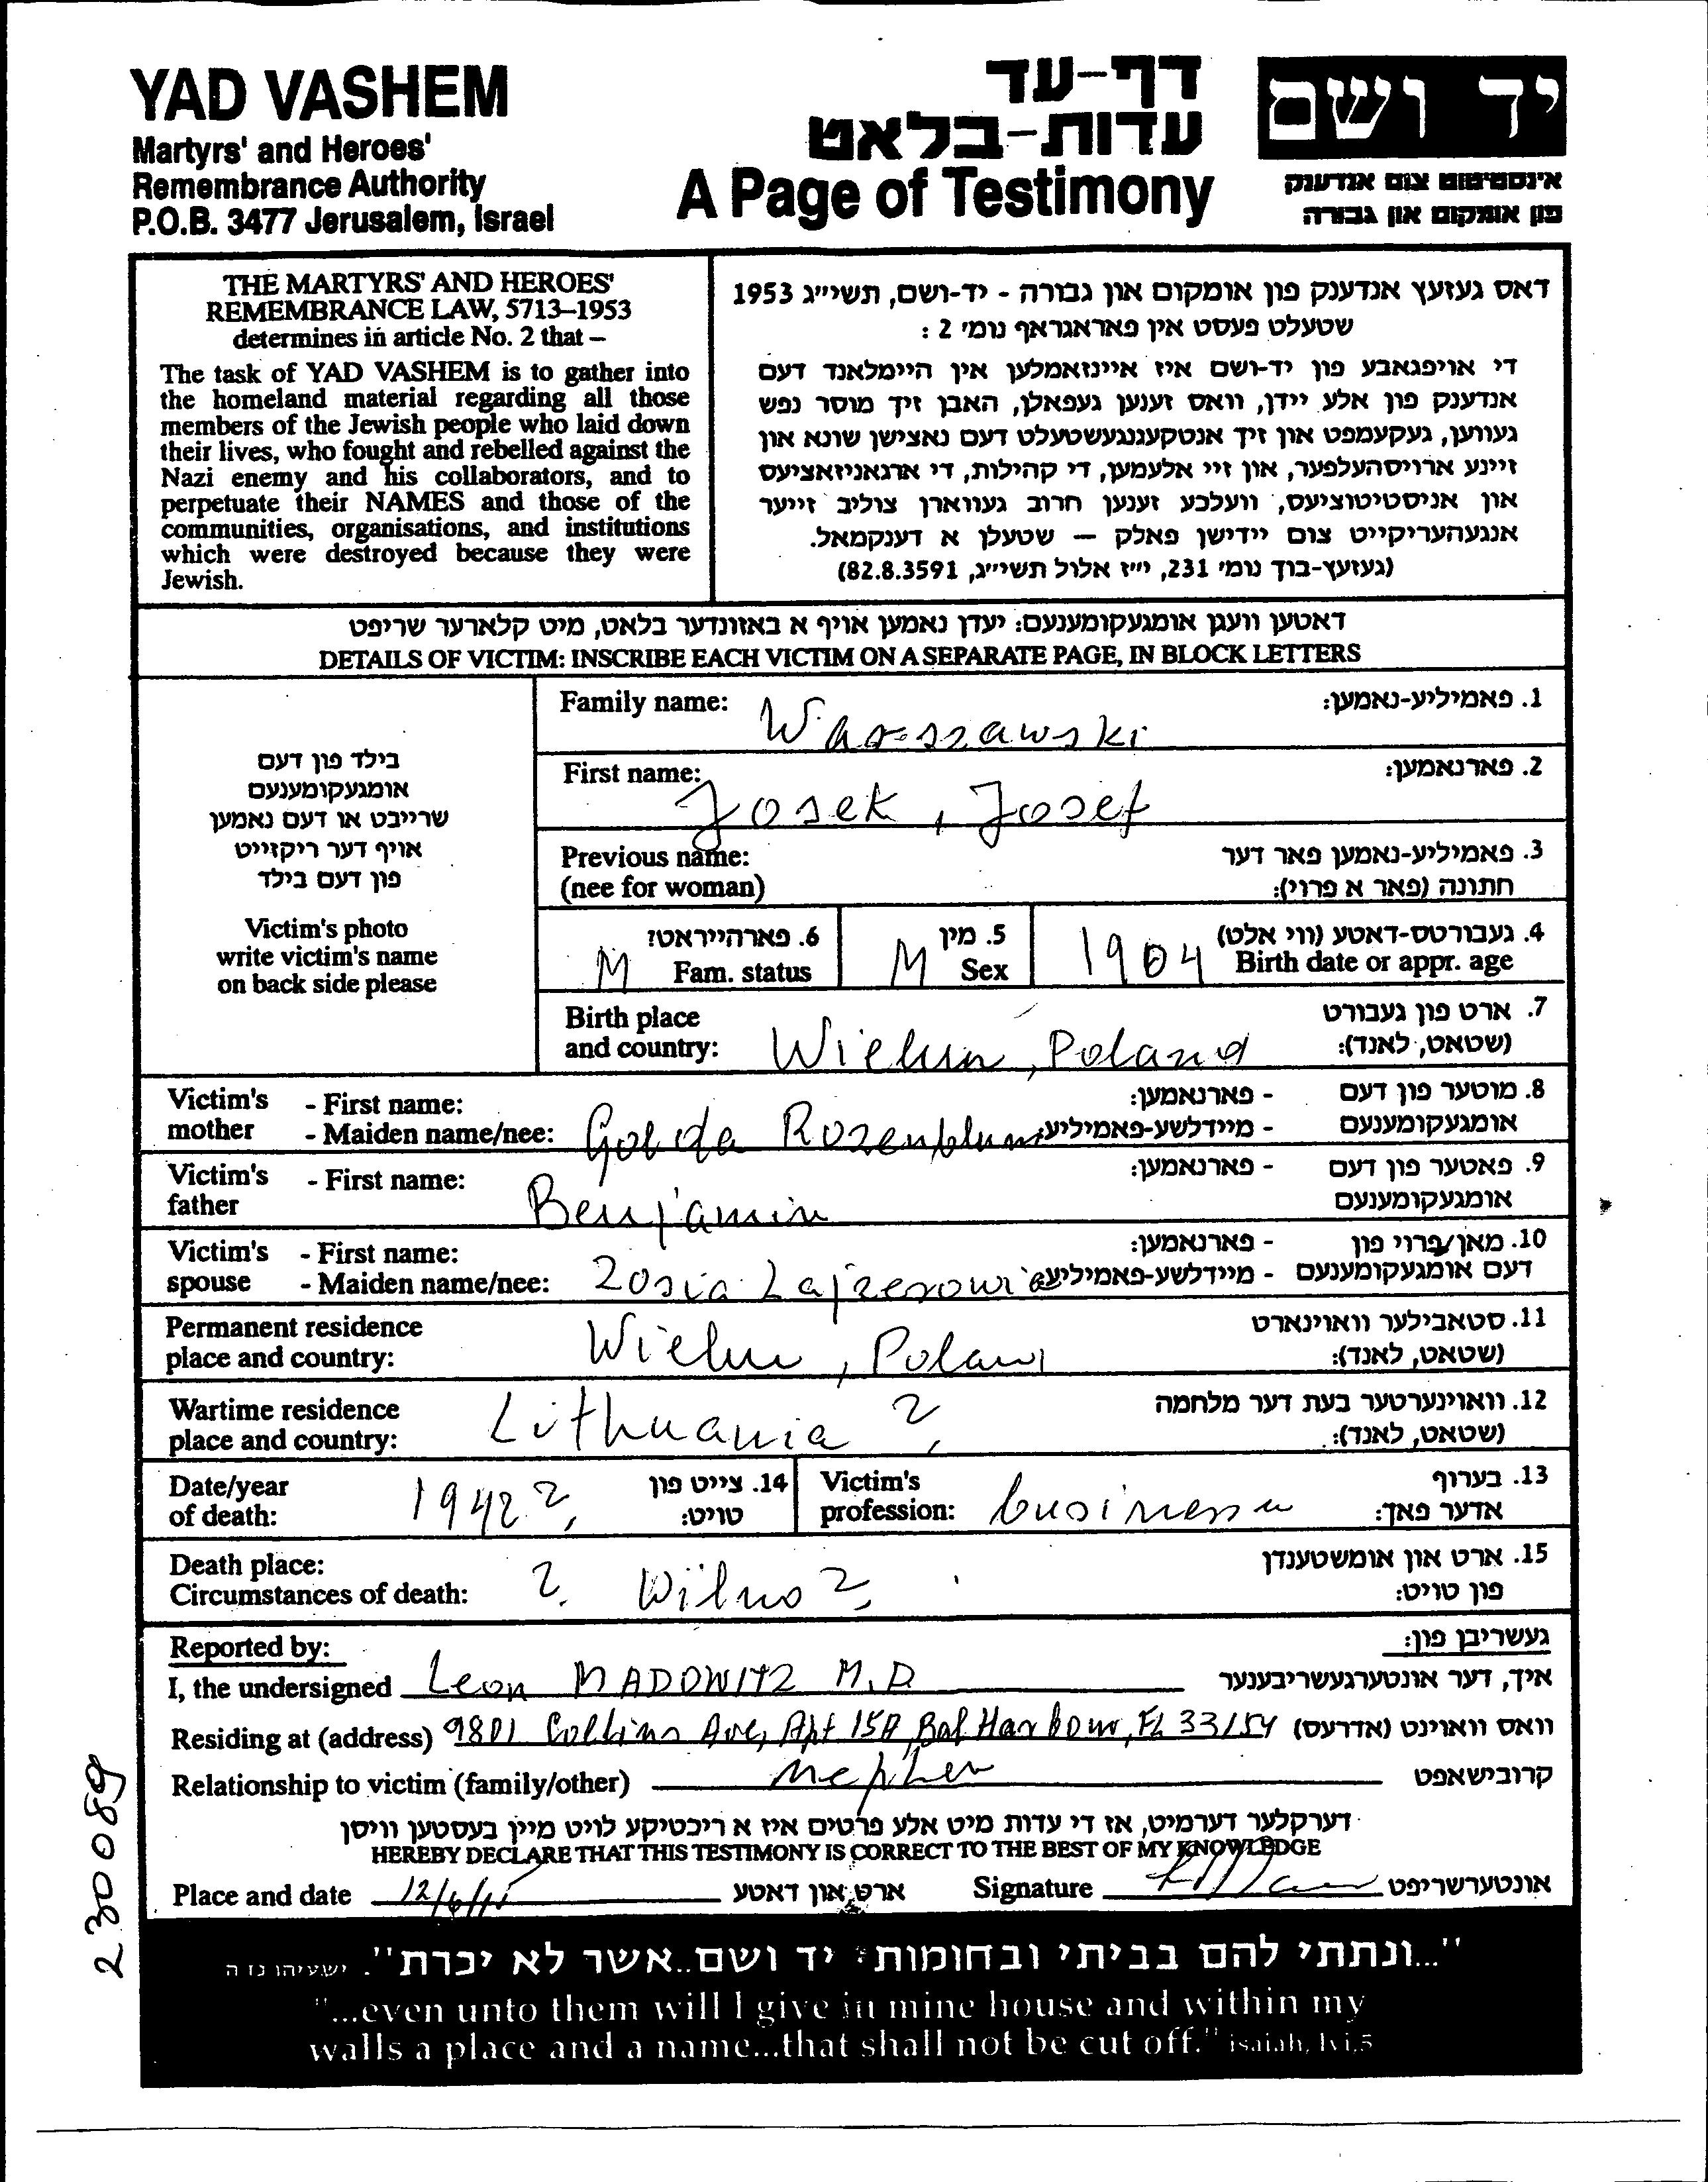 YAD VASHEM
Martyrs' and Heroes'
Remembrance Authority
P.O.B. 3477 Jerusalem, Israel
דף-עד
עדות-בלאט
A Page of Testimony
יד ושם
אינסטיטוט צום אנדענק
פון אומקום און גבורה
THE MARTYRS' AND HEROES'
REMEMBRANCE LAW, 5713–1953
determines in article No. 2 that –
The task of YAD VASHEM is to gather into
the homeland material regarding all those
members of the Jewish people who laid down
their lives, who fought and rebelled against the
Nazi enemy and his collaborators, and to
perpetuate their NAMES and those of the
communities, organisations, and institutions
which were destroyed because they were
Jewish.
דאס געזעץ אנדענק פון אומקום און גבורה - יד-ושם, תשי״ג 1953
שטעלט פעסט אין פאראגראף נומ׳ 2 :
די אויפגאבע פון יד-ושם איז איינזאמלען אין היימלאנד דעם
אנדענק פון אלע יידן, וואס זענען געפאלן, האבן זיך מוסר נפש
געווען, געקעמפט און זיך אנטקעגנגעשטעלט דעם נאצישן שונא און
זיינע ארויסהעלפער, און זיי אלעמען, די קהילות, די ארגאניזאציעס
און אניסטיטוציעס, וועלכע זענען חרוב געווארן צוליב זייער
אנגעהעריקייט צום יידישן פאלק – שטעלן א דענקמאל.
(געזעץ-בוך נומ׳ 231, י״ז אלול תשי״ג, 82.8.3591)
דאטען וועגן אומגעקומענעם: יעדן נאמען אויף א באזונדער בלאט, מיט קלארער שריפט
DETAILS OF VICTIM: INSCRIBE EACH VICTIM ON A SEPARATE PAGE, IN BLOCK LETTERS
בילד פון דעם
אומגעקומענעם
שרייבט או דעם נאמען
אויף דער ריקזייט
פון דעם בילד
Victim's photo
write victim's name
on back side please
Family name: Warszawski 1. פאמיליע-נאמען:
First name: Josek, Josef 2. פארנאמען:
Previous name: 3. פאמיליע-נאמען פאר דער
(nee for woman) חתונה (פאר א פרוי):
6. פארהייראט? 5. מין 4. געבורטס-דאטע (ווי אלט)
M Fam. status M Sex 1904 Birth date or appr. age
Birth place 7. ארט פון געבורט
and country: Wielun, Poland (שטאט, לאנד):
Victim's - First name: - פארנאמען: 8. מוטער פון דעם
mother - Maiden name/nee: Golda Rozenblum - מיידלשע-פאמיליע: אומגעקומענעם
Victim's - First name: - פארנאמען: 9. פאטער פון דעם
father Benjamin אומגעקומענעם
Victim's - First name: - פארנאמען: 10. מאן/פרוי פון
spouse - Maiden name/nee: Zosia - מיידלשע-פאמיליע דעם אומגעקומענעם
Permanent residence 11. סטאבילער וואוינארט
place and country: Wielun, Poland (שטאט, לאנד):
Wartime residence 12. וואוינערטער בעת דער מלחמה
place and country: Lithuania ? (שטאט, לאנד):
Date/year 14. צייט פון Victim's 13. בערוף
of death: 1942? טויט: profession: אדער פאך:
Death place: 15. ארט און אומשטענדן
Circumstances of death: ? Wilno? פון טויט:
Reported by: געשריבן פון:
I, the undersigned Leon MADOWITZ M.D. איך, דער אונטערגעשריבענער
Residing at (address) 9801 Collins Ave, Apt 15A, Bal Harbour, FL 33154 וואס וואוינט (אדרעס)
Relationship to victim (family/other) nephew קרובישאפט
דערקלער דערמיט, אז די עדות מיט אלע פרטים איז א ריכטיקע לויט מיין בעסטען וויסן
HEREBY DECLARE THAT THIS TESTIMONY IS CORRECT TO THE BEST OF MY KNOWLEDGE
Place and date ארט און דאטע Signature אונטערשריפט
230089
"...ונתתי להם בביתי ובחומותי יד ושם..אשר לא יכרת". ישעיהו נו ה
"...even unto them will I give in mine house and within my
walls a place and a name...that shall not be cut off." isaiah, lvi,5